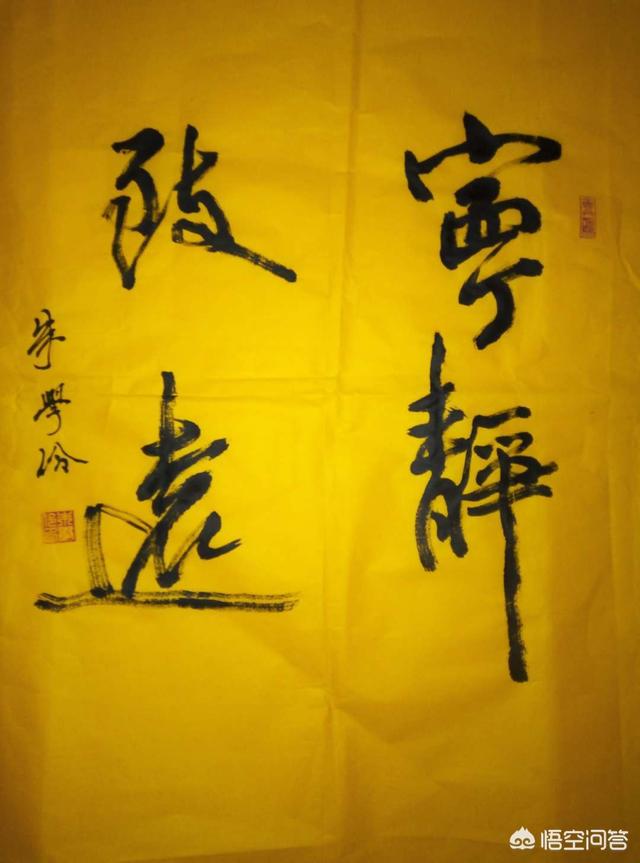 寧靜
致遠
朱學玲
悟空问答